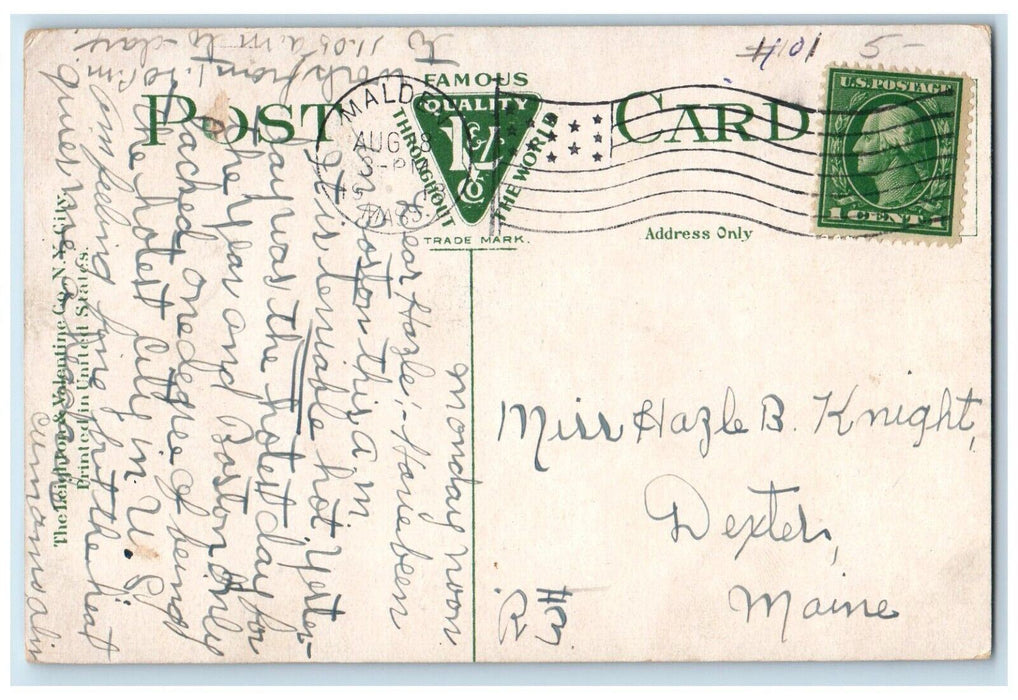 #101 5-
POST CARD
FAMOUS
QUALITY
L & V Co
THROUGHOUT THE WORLD
TRADE MARK.
MALDEN
AUG 28
MASS.
U.S. POSTAGE
1 CENT 1
Address Only
Monday noon
Dear Hazle:- Have been
in Boston this a.m.
It is terrible hot. Yester-
day was the hotest day for
the year and Boston only
lacked one degree of being
the hotest City in U.S.
am feeling fine but the heat
gives me
work from 1.10 P.M.
to 11.05 a.m. to-day.
The Leighton & Valentine Co., N.Y. City.
Printed in United States.
Miss Hazle B. Knight,
Dexter,
Maine
R.